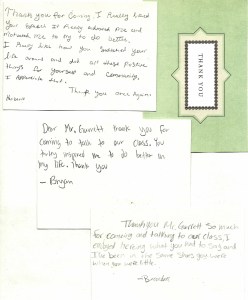 Thank you for Coming. I Really liked
your speech it Really adored me and
Motivated me to try to do better.
I Really like how you switched your
life around and did all these Positive
things to yourself and Community.
I Appreciate that.
Thank you once Again!
THANK YOU
Dear Mr. Garrett thank you for
coming to talk to our class. You
truley inspired me to do better on
my life. Thank you
- Bryan
Thank you Mr. Garrett So much
for coming and talking to our class, I
enjoyed hearing what you had to say and
I've been in the same shoes you were
when you were little.
- Brandon